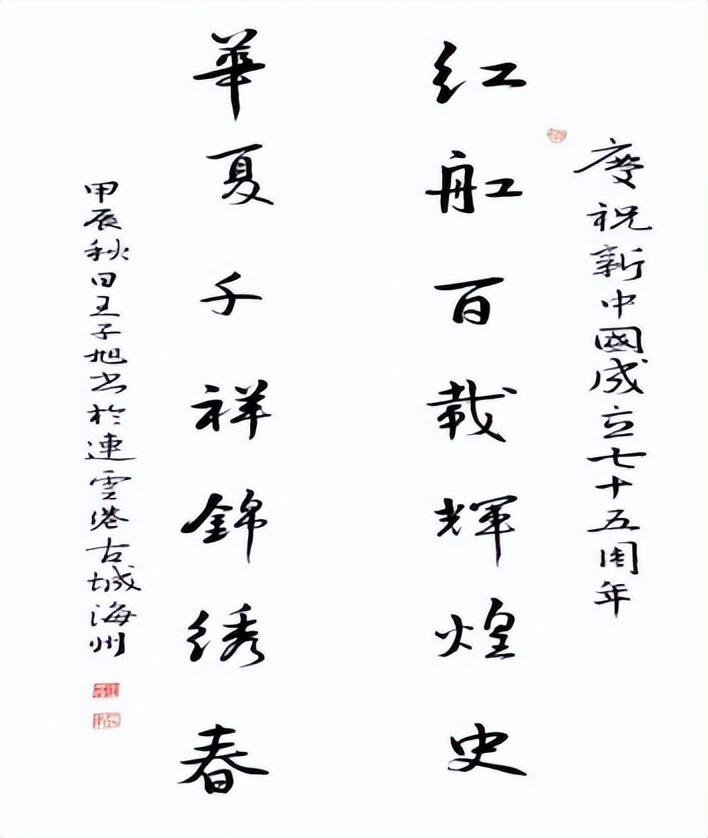 慶祝新中國成立七十五周年
红船百载辉煌史
華夏千祥錦绣春
甲辰秋日王子旭书於連雲港古城海州